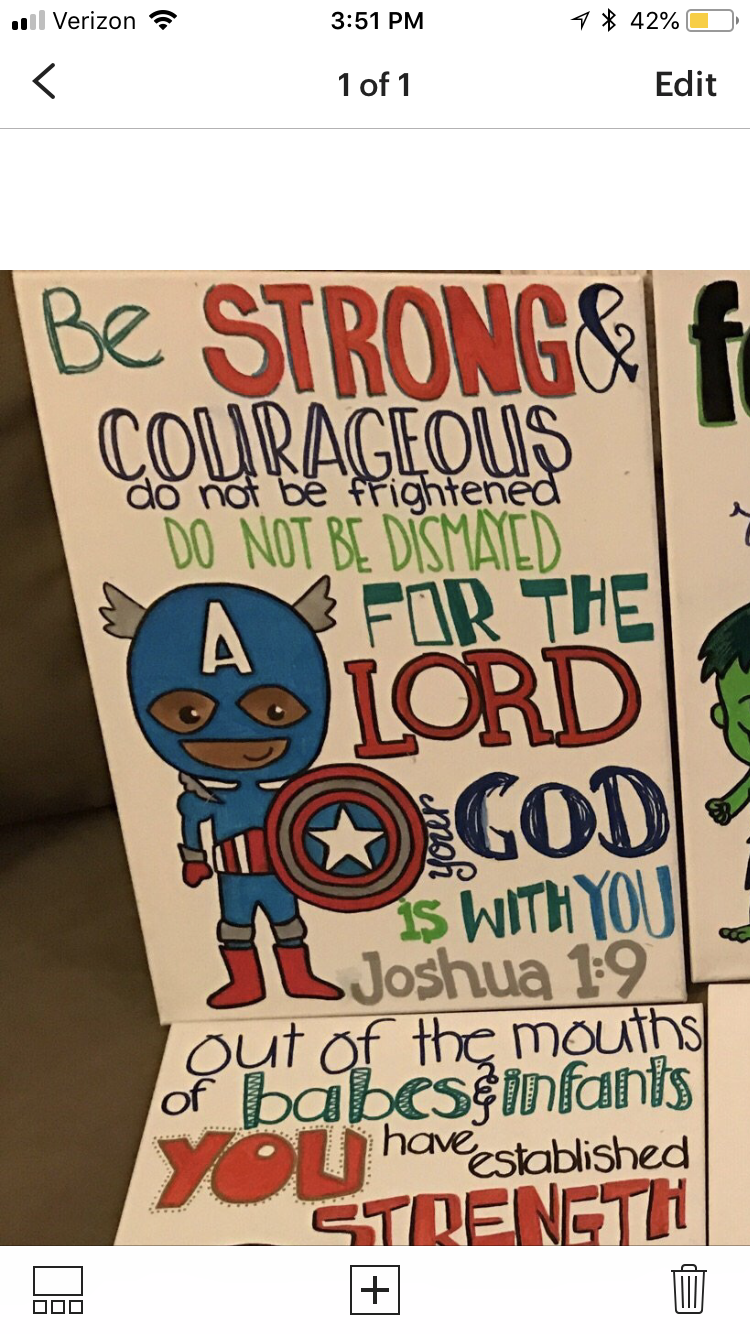 Verizon 3:51 PM 42%
1 of 1 Edit
Be STRONG &
COURAGEOUS
do not be frightened
DO NOT BE DISMAYED
FOR THE
LORD
your GOD
is WITH YOU
Joshua 1:9
A
out of the mouths
of babes & infants
YOU have established
STRENGTH